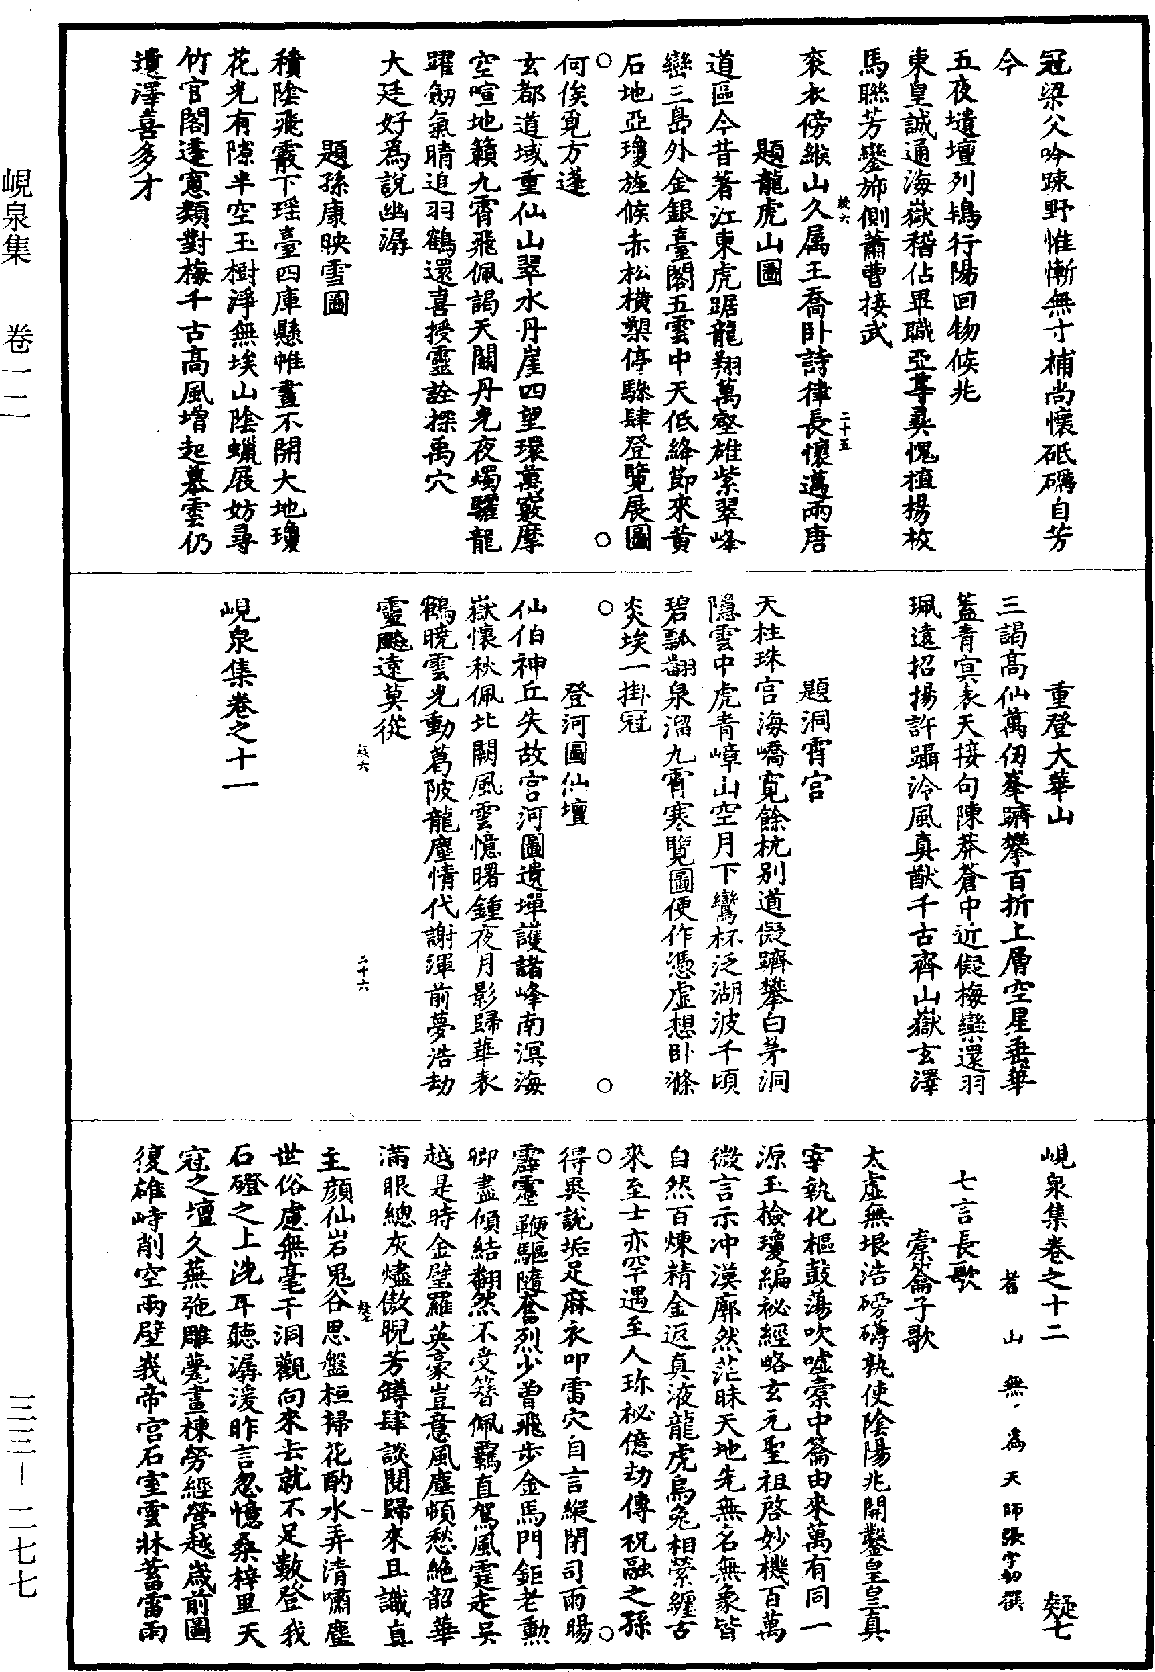 峴泉集 卷一二
三三－二七七
冠梁父吟疎野惟慚無寸補尚懷砥礪自芳
今
五夜壝壇列鵷行陽回物候兆
東皇誠通海嶽稽佔畢職亞尊彝愧植揚枚
馬聯芳鑾斾側蕭曹接武
衮衣傍緱山久属王喬卧詩律長懷邁兩唐
疑六
二十五
題龍虎山圖
道區今昔著江東虎踞龍翔萬壑雄紫翠峰
巒三島外金銀臺閣五雲中天低絳節來黄
石地亞瓊旌候赤松横槊停驂肆登覽展圖
何俟覓方蓬
玄都道域重仙山翠水丹崖四望環萬竅摩
空喧地籟九霄飛佩謁天關丹光夜燭驪龍
躍劒氣晴追羽鶴還喜授靈詮探禹穴
大廷好爲說幽潺
題孫康映雪圖
積陰飛霰下瑶臺四庫懸帷晝不開大地瓊
花光有隙半空玉樹淨無埃山陰蠟屐妨尋
竹官閣蓬窻類對梅千古高風增起慕雲仍
遺澤喜多才
重登大華山
三謁高仙萬仭峯躋攀百折上層空星垂華
蓋青冥表天接句陳莽蒼中近儗梅巒還羽
珮遠招揚許躡泠風真猷千古齊山嶽玄澤
題洞霄宫
天柱珠宫海嶠寛餘杭别道儗躋攀白茅洞
隱雲中虎青嶂山空月下鸞杯泛湖波千頃
碧瓢翻泉溜九霄寒覽圖便作憑虚想卧滌
炎埃一掛冠
登河圖仙壇
仙伯神丘失故宫河圖遺墠護諸峰南溟海
嶽懷秋佩北闕風雲憶曙鍾夜月影歸華表
鶴曉雲光動葛陂龍塵情代謝渾前夢浩劫
靈飈遠莫從
疑六
二十六
峴泉集卷之十一
峴泉集卷之十二
疑七
耆山無爲天師張宇初撰
七言長歌
槖籥子歌
太虚無垠浩磅礴孰使陰陽兆開鑿皇皇真
宰執化樞鼓蕩吹嘘槖中籥由來萬有同一
源玉檢瓊編祕經略玄元聖祖啓妙機百萬
微言示冲漠廓然茫昧天地先無名無象皆
自然百煉精金返真液龍虎烏兔相縈纏古
來至士亦罕遇至人珎祕億劫傳祝融之孫
得異說垢足麻衣叩雷穴自言縱閉司雨暘
霹靂鞭驅隨奮烈少曾飛步金馬門鉅老勲
卿盡傾結翻然不受簪佩羈直駕風霆走吴
越是時金璧羅英豪豈意風塵頓愁絶韶華
滿眼總灰燼傲睨芳罇肆談閱歸來且識真
疑七
一
主顔仙岩鬼谷思盤桓掃花酌水弄清嘯塵
世俗慮無毫干洞觀向來去就不足數登我
石磴之上洗耳聽潺湲昨言忽憶桑梓里天
寇之壇久蕪弛雕甍畫棟勞經營越歲前圖
復雄峙削空兩壁峩帝宫石室雲牀蓄雷雨